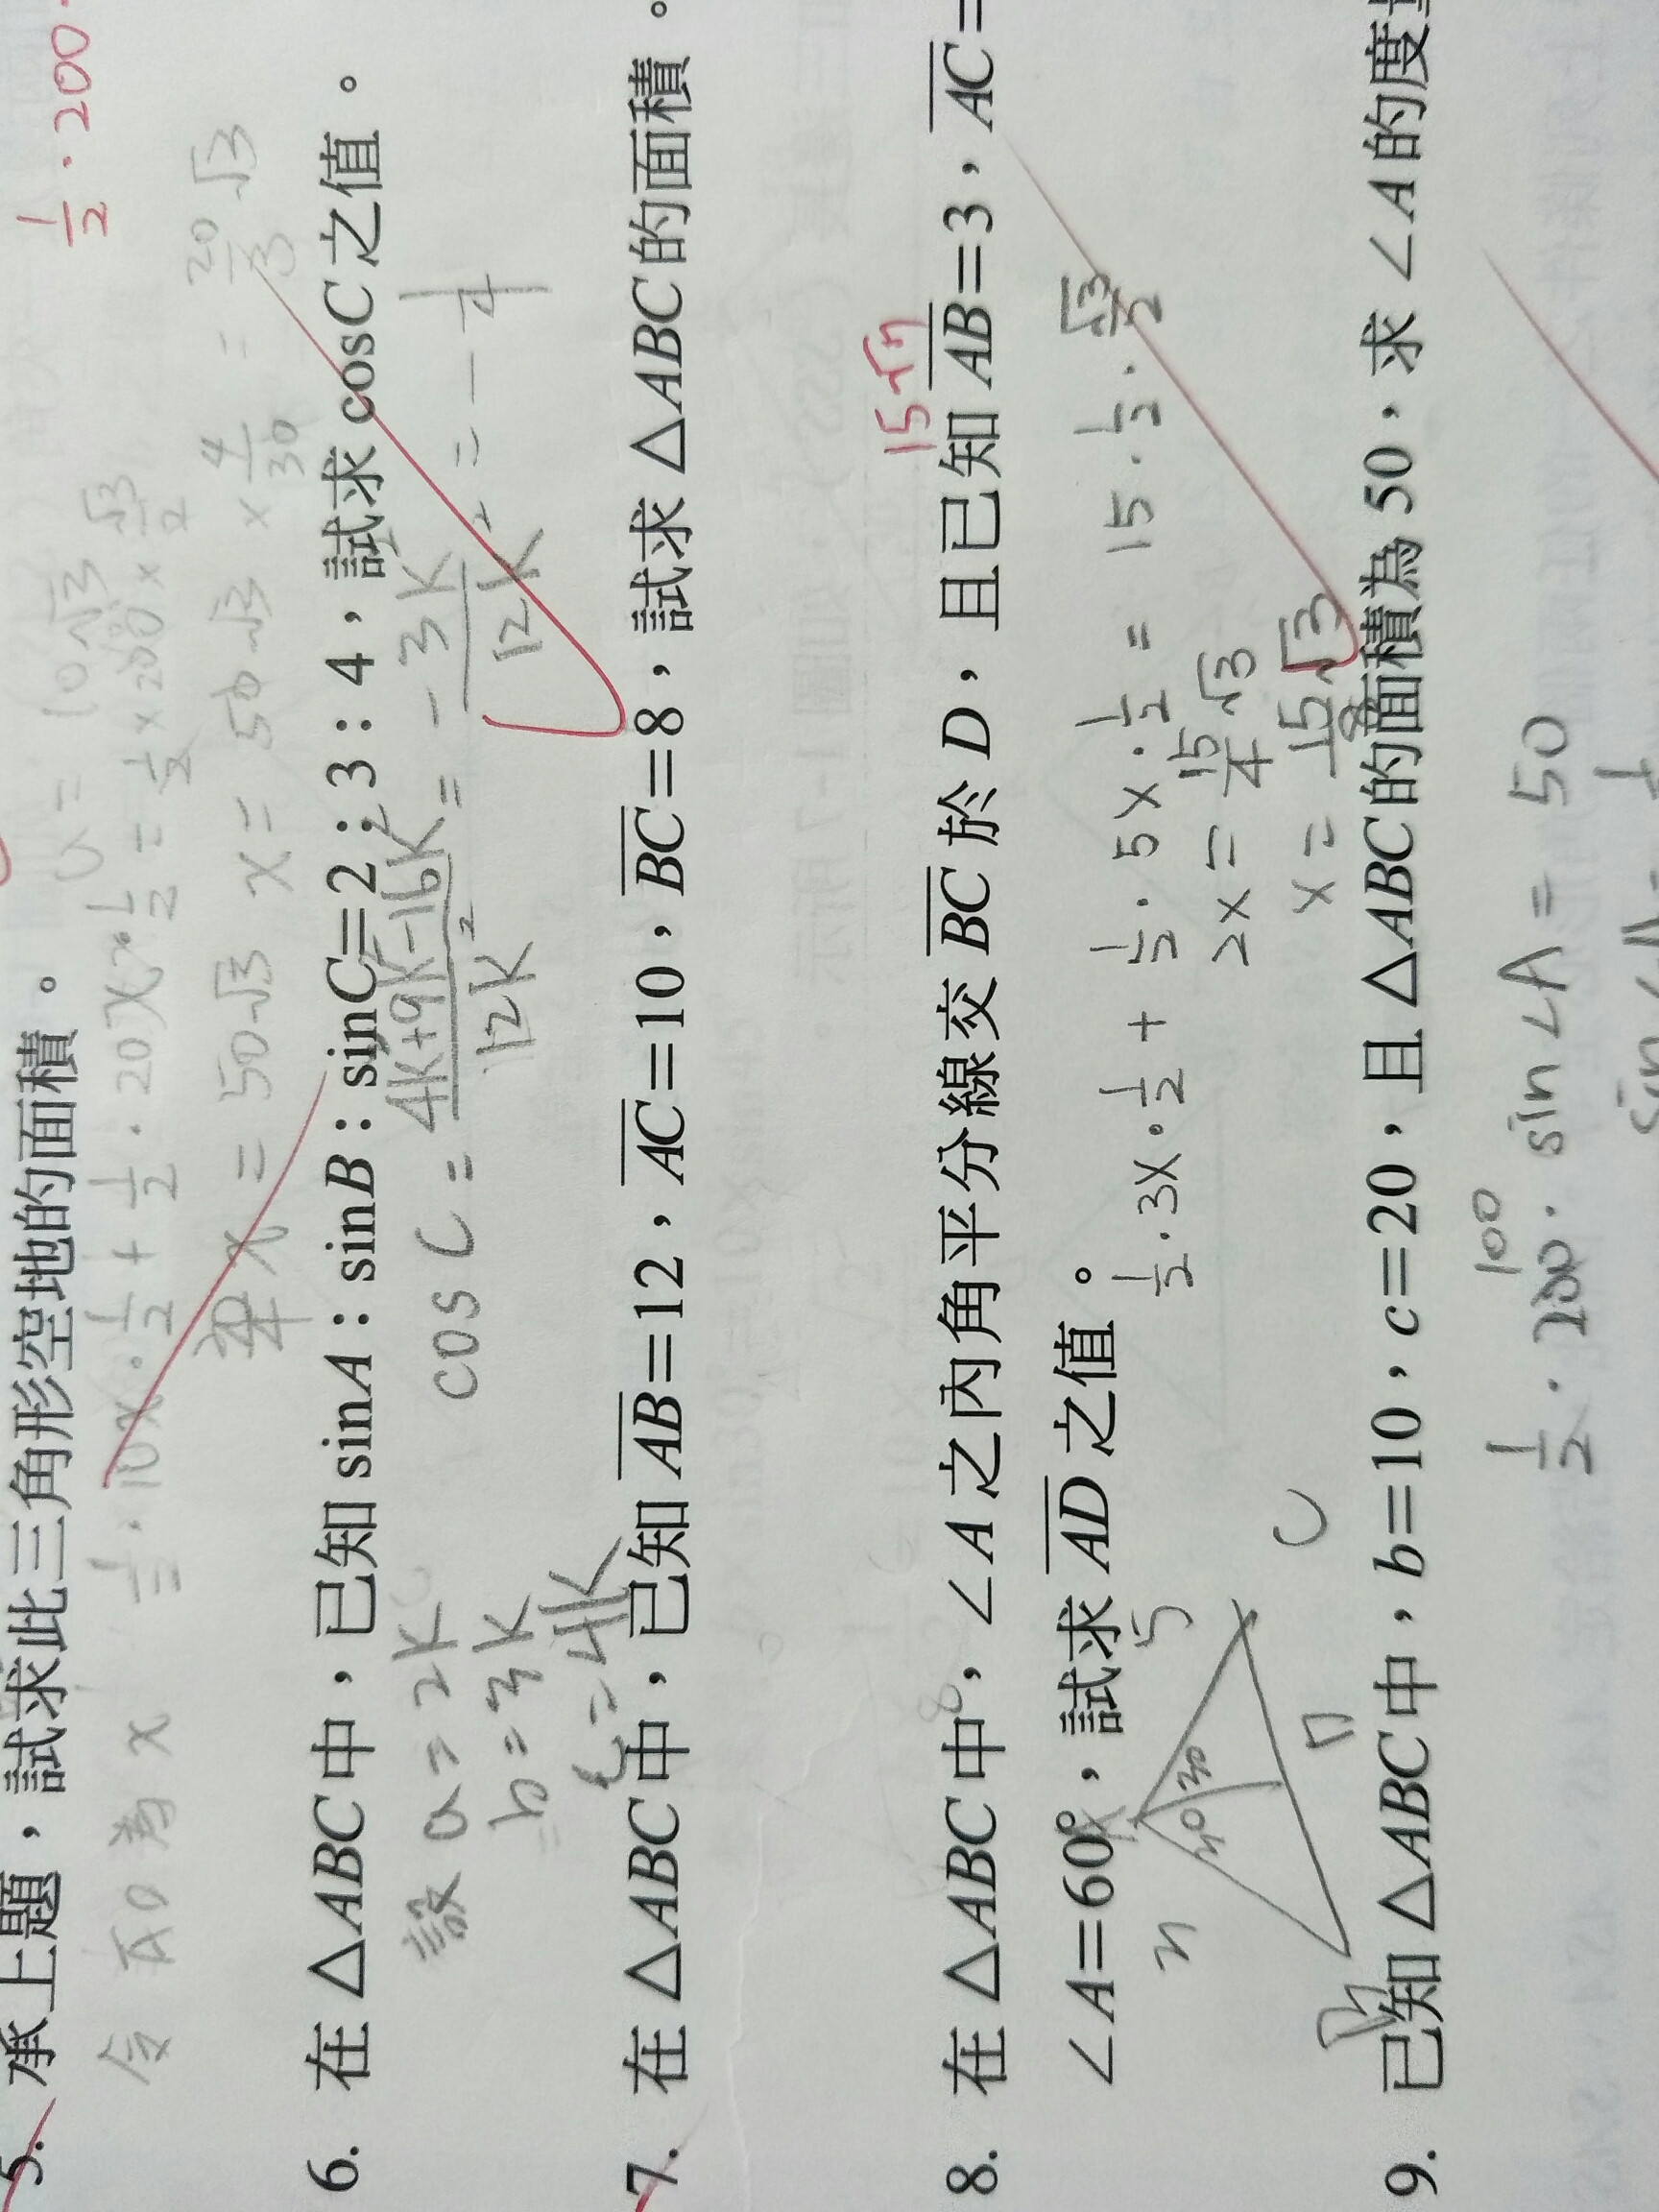 ½·200
5. 承上題，試求此三角形空地的面積。
令 AD 為 x
½·10x·½ + ½·20x·½ = ½×200×√3/2
x = 50√3 x = 50√3 × 4/30 = 20/3 √3
6. 在 △ABC 中，已知 sinA：sinB：sinC=2：3：4，試求 cosC 之值。
設 a = 2k
b = 3k
c = 4k
cos C = 4k+9k-16k²/12k² = -3k/12k² = -1/4
7. 在 △ABC 中，已知 AB=12，AC=10，BC=8，試求 △ABC 的面積。
15√7
8. 在 △ABC 中，∠A 之內角平分線交 BC 於 D，且已知 AB=3，AC=
∠A=60°，試求 AD 之值。
½·3x·½ + ½·5x·½ = 15·½·√3/2
2x = 15/4 √3
x = 15/8 √3
3 5
30 30
B D C
9. 已知 △ABC 中，b=10，c=20，且 △ABC 的面積為 50，求 ∠A 的度
100
½·200·sin∠A = 50